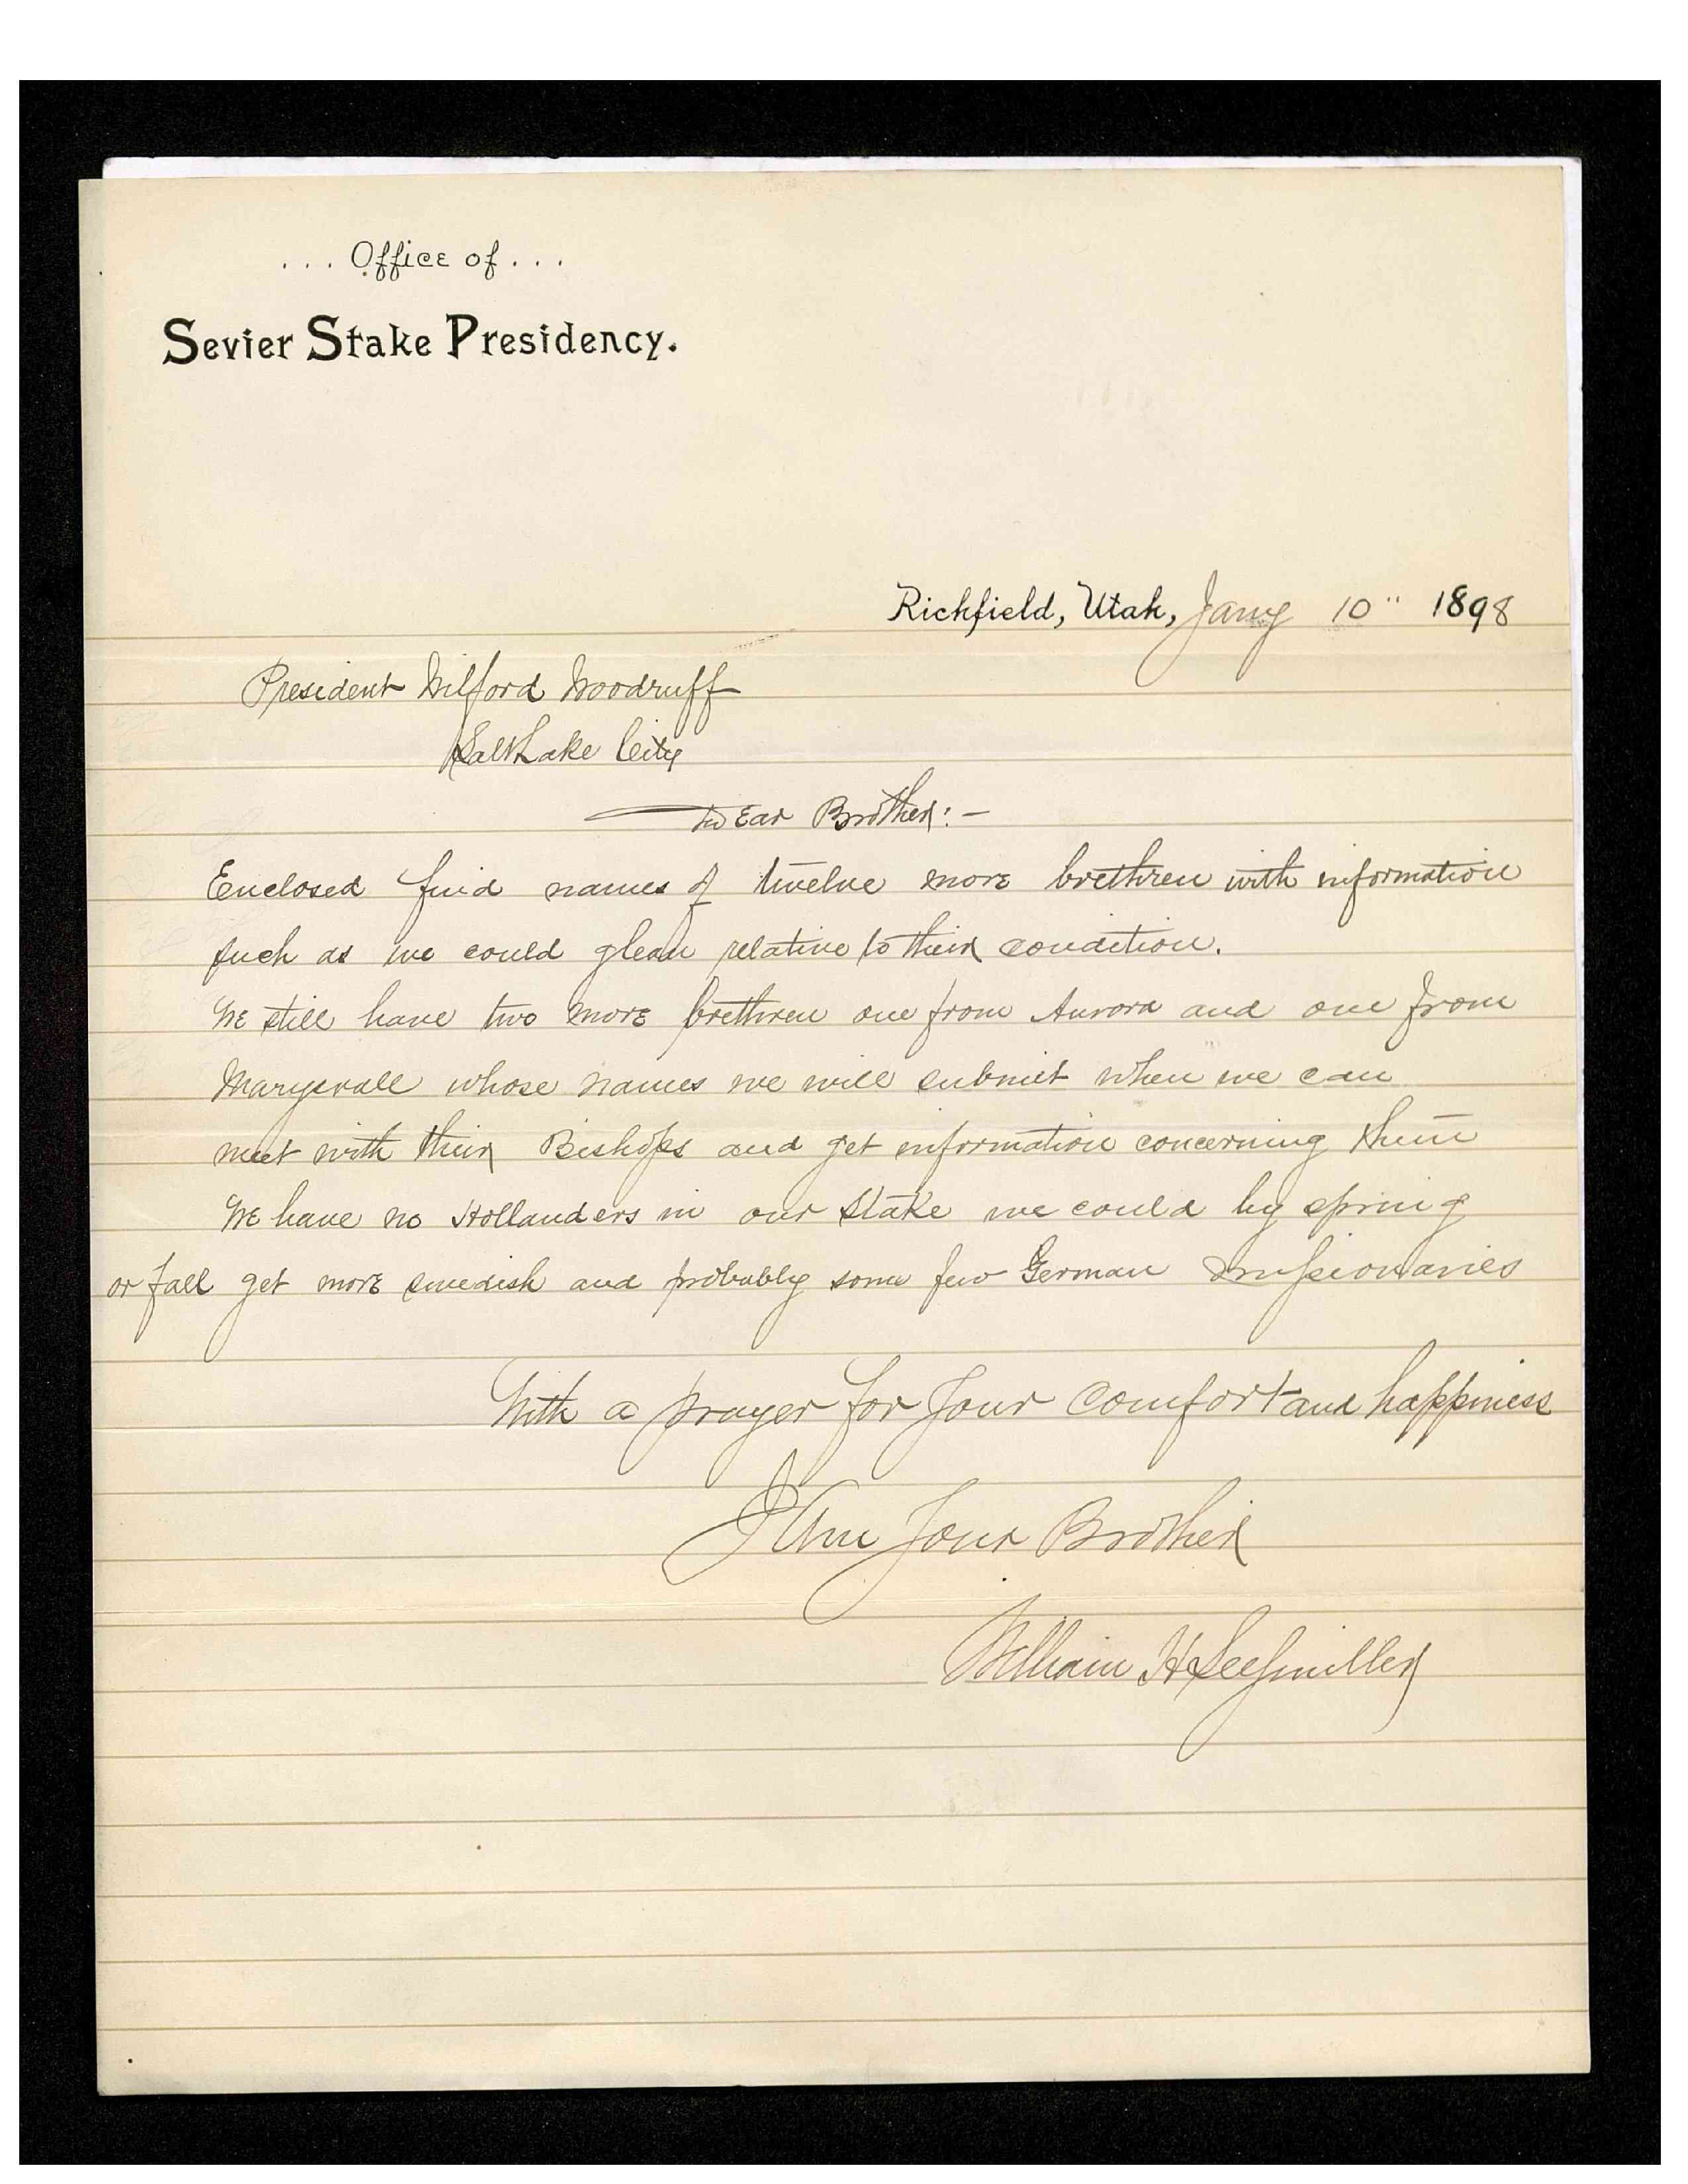 ... Office of ...
Sevier Stake Presidency.
Richfield, Utah, Jany 10" 1898
President Wilford Woodruff
Salt Lake City
Dear Brother:-
Enclosed find names of twelve more brethren with information
such as we could glean relative to their condition.
We still have two more brethren one from Aurora and one from
Marysvale whose names we will submit when we can
meet with their Bishops and get information concerning them
We have no Hollanders in our Stake we could by spring
or fall get more swedish and probably some few German missionaries
With a prayer for Your Comfort and happiness
I Am Your Brother
William H Seegmiller